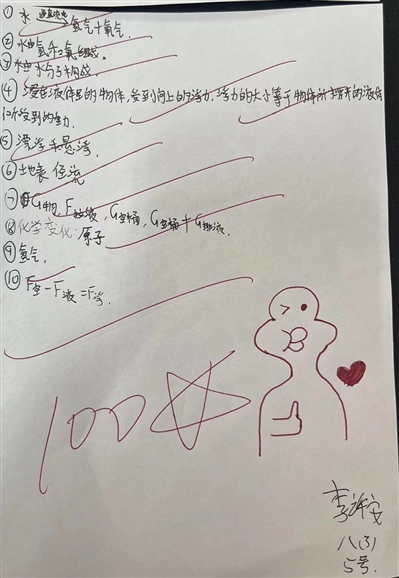 ① 水 通直流电 氢气+氧气.
② 水由氢和氧组成。
③ 水由水分子构成
④ 浸在液体里的物体,受到向上的浮力.浮力的大小等于物体所排开的液体
所受到的重力.
⑤ 漂浮和悬浮.
⑥ 地表径流
⑦ G物, F拉液, G空桶, G空桶+G排液.
⑧ 化学变化: 原子
⑨ 氢气.
⑩ F空-F液=F浮.
100
八(3)
5号.